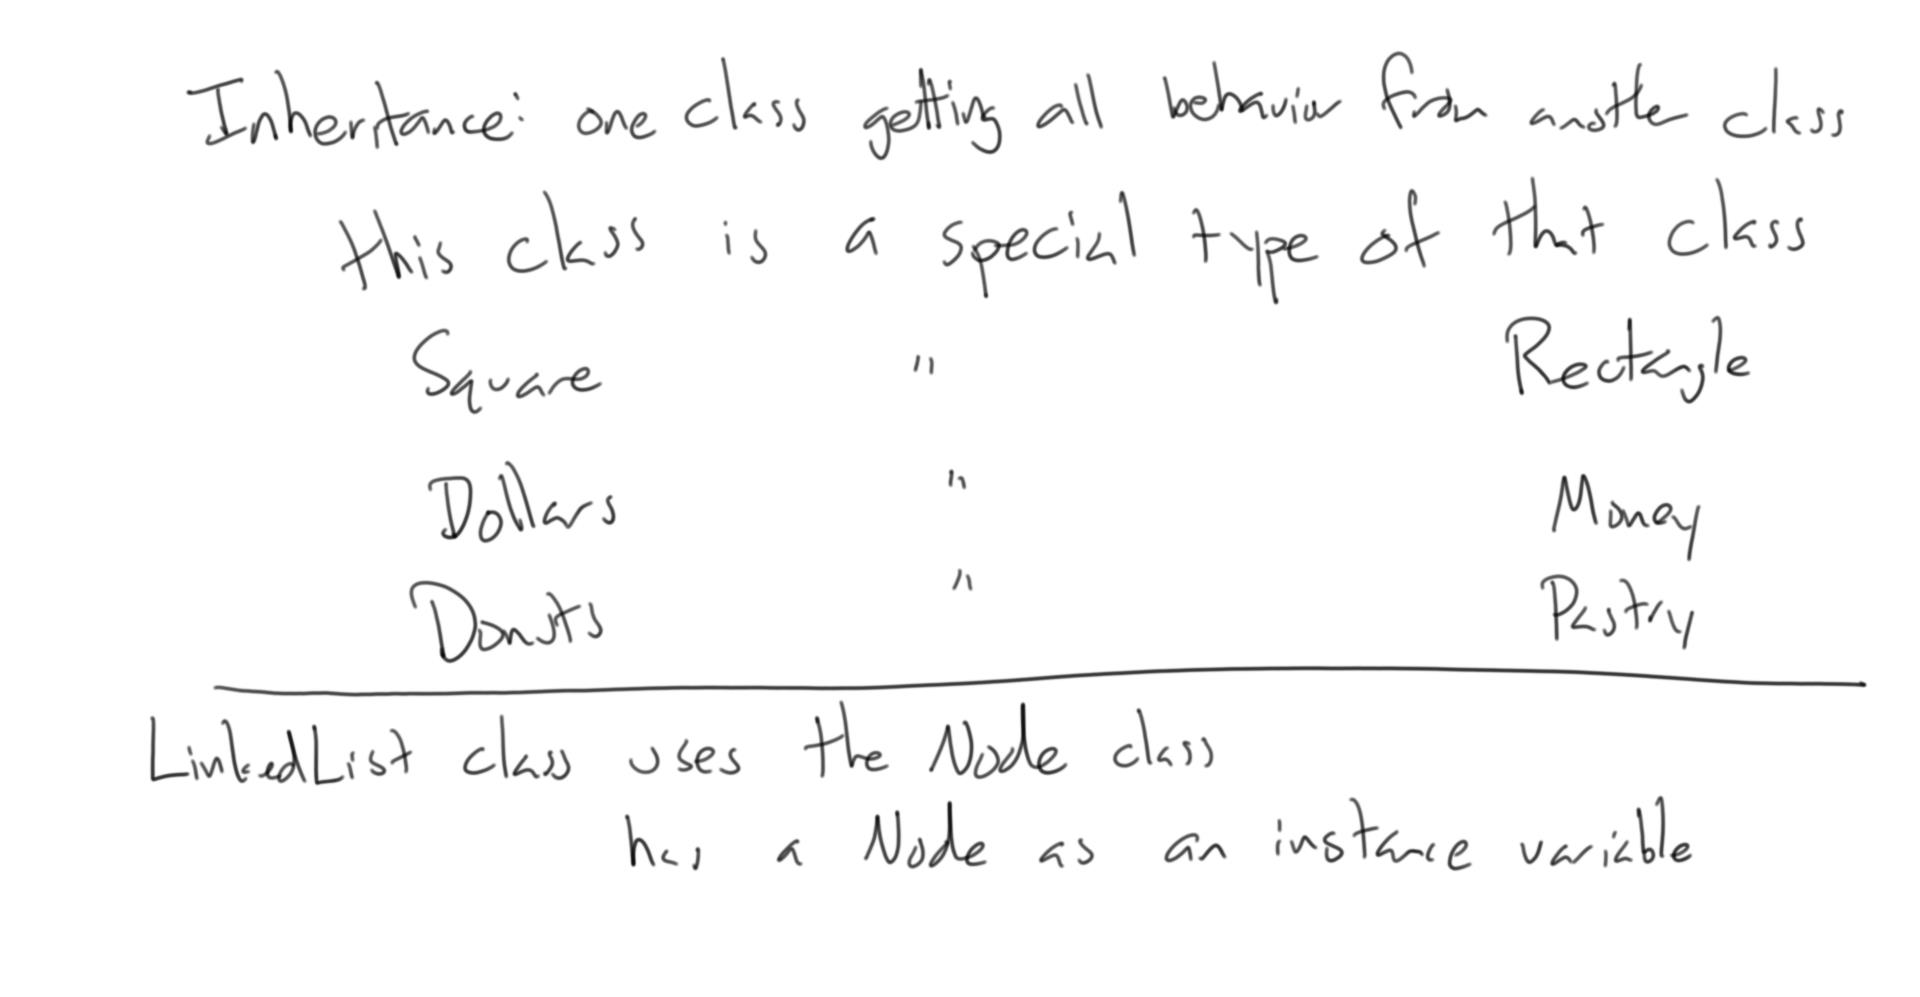 Inhertance: one class getting all behavior from another class
this class is a special type of that class
Square " Rectangle
Dollars " Money
Donuts " Pastry
LinkedList class uses the Node class
has a Node as an instance variable